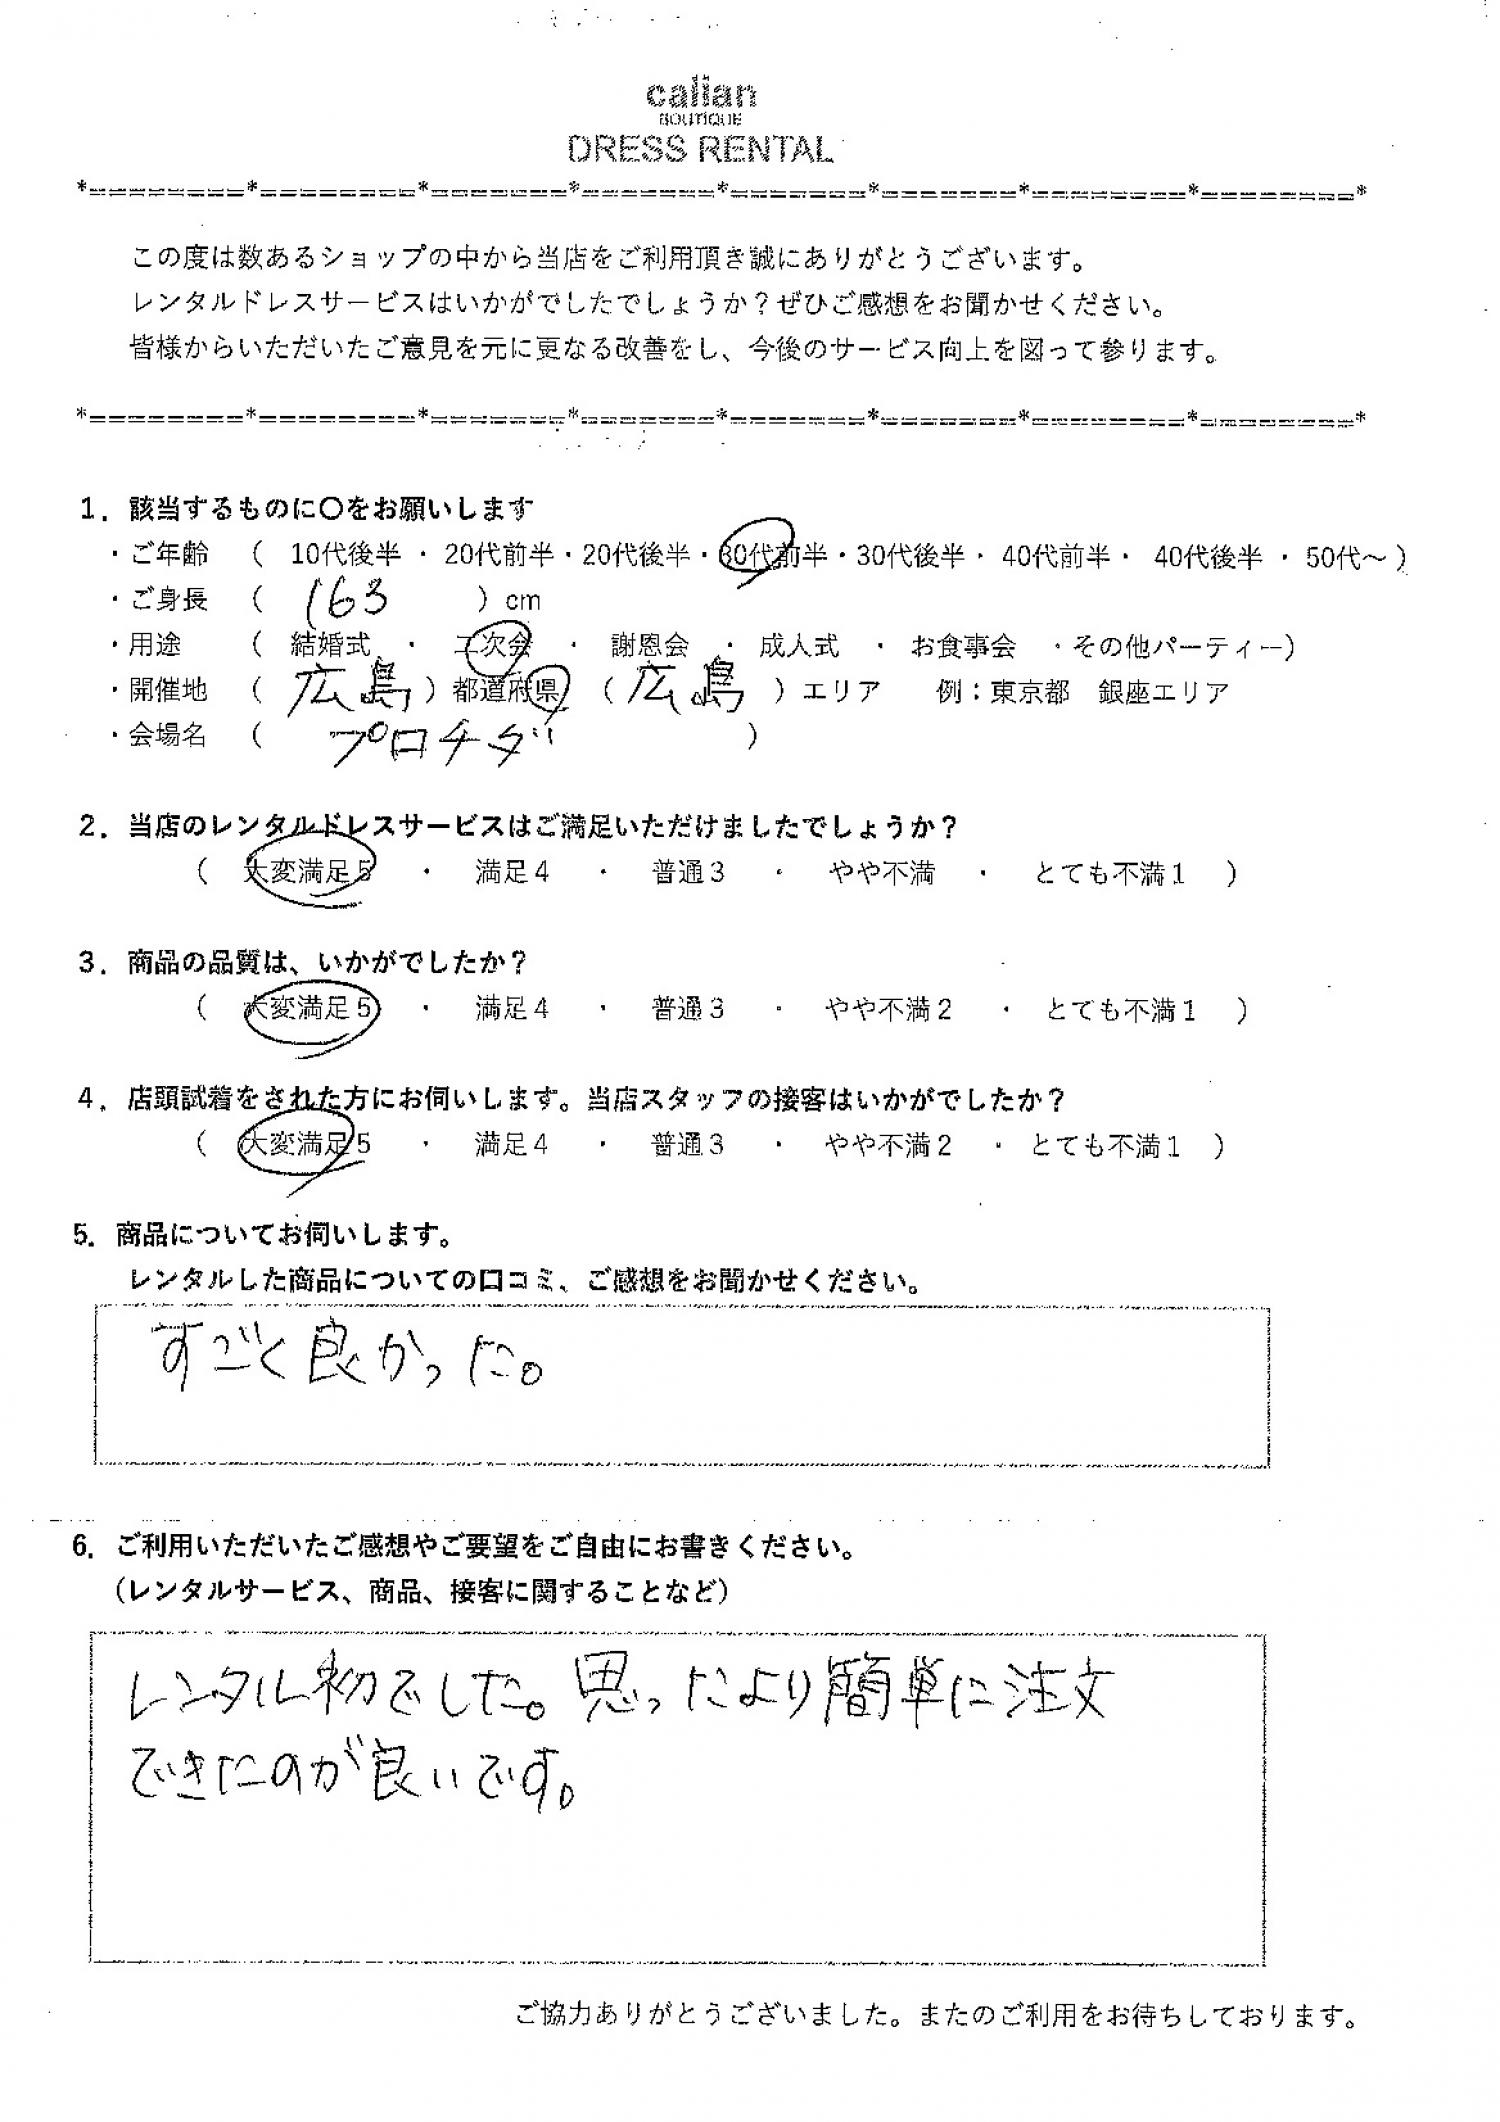 calian
BOUTIQUE
DRESS RENTAL
*========*========*=======*=======*=======*=======*========*========*
この度は数あるショップの中から当店をご利用頂き誠にありがとうございます。
レンタルドレスサービスはいかがでしたでしょうか？ぜひご感想をお聞かせください。
皆様からいただいたご意見を元に更なる改善をし、今後のサービス向上を図って参ります。
*========*========*=======*=======*=======*=======*========*========*
1．該当するものに〇をお願いします
・ご年齢 （ 10代後半 ・ 20代前半・20代後半・30代前半・30代後半・ 40代前半・ 40代後半 ・ 50代～ ）
・ご身長 （ 163 ）cm
・用途 （ 結婚式 ・ 二次会 ・ 謝恩会 ・ 成人式 ・ お食事会 ・その他パーティー）
・開催地 （ 広島 ）都道府県 （ 広島 ）エリア 例：東京都 銀座エリア
・会場名 （ プロチダ ）
2．当店のレンタルドレスサービスはご満足いただけましたでしょうか？
（ 大変満足５ ・ 満足４ ・ 普通３ ・ やや不満 ・ とても不満１ ）
3．商品の品質は、いかがでしたか？
（ 大変満足５ ・ 満足４ ・ 普通３ ・ やや不満２ ・ とても不満１ ）
4．店頭試着をされた方にお伺いします。当店スタッフの接客はいかがでしたか？
（ 大変満足５ ・ 満足４ ・ 普通３ ・ やや不満２ ・ とても不満１ ）
5．商品についてお伺いします。
レンタルした商品についての口コミ、ご感想をお聞かせください。
すごく良かった。
6．ご利用いただいたご感想やご要望をご自由にお書きください。
（レンタルサービス、商品、接客に関することなど）
レンタル初でした。思ったより簡単に注文
できたのが良いです。
ご協力ありがとうございました。またのご利用をお待ちしております。